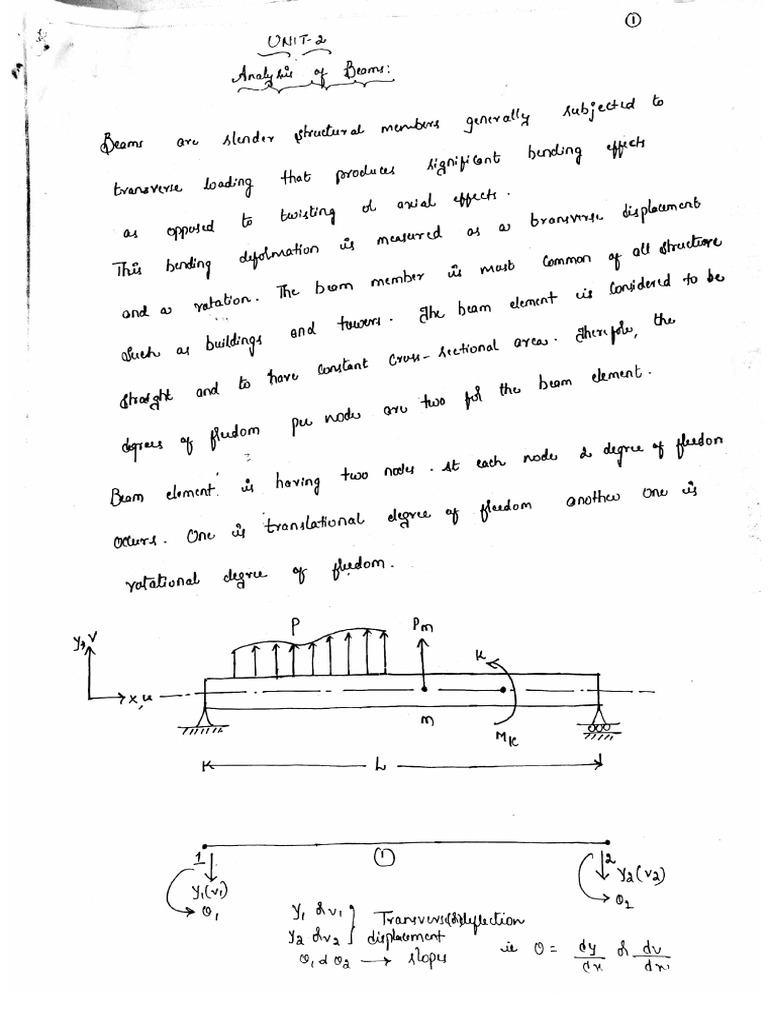 ①
UNIT-2
Analysis of Beams:
Beams are slender structural members generally subjected to
transverse loading that produces significant bending effects
as opposed to twisting or axial effects.
This bending deformation is measured as a transverse displacement
and a rotation. The beam member is most common of all structure
such as buildings and towers. The beam element is considered to be
straight and to have constant cross-sectional area. Therefore, the
degrees of freedom per node are two for the beam element.
Beam element is having two nodes. At each node 2 degree of freedom
occurs. One is translational degree of freedom another one is
rotational degree of freedom.
y,v
P
Pm
K
x,u
m
MK
L
1
①
2
y1(v1)
θ1
y2(v2)
θ2
y1 or v1
y2 or v2
Transverse (or) deflection
displacement
θ1 & θ2 → slopes
ie θ = dy/dx or dv/dx